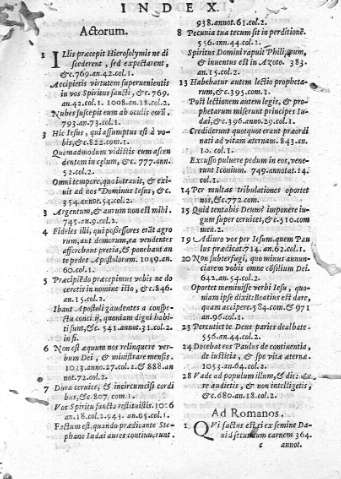 INDEX.
Actorum.
1 Illis præcepit Hierosolymis ne di
scederent, sed expectarent,
&c. 769. an. 42. col. 1.
Accipietis virtutem superuenientis
in vos Spiritus sancti, &c. 769.
an. 42. col. 1. 1008. an. 18. col. 2.
Nubes suscepit eum ab oculis eorũ.
793. an. 73. col. 1.
3 Hic Iesus, qui assumptus est à vo-
bis, &c. 822. com. 1.
Quemadmodum vidistis eum ascen
dentem in cœlum, &c. 777. ann.
52. col. 2.
Omni tempore, quo intrauit, & exi-
uit ad vos Dominus Iesus, &c.
354. annot. 54. col. 2.
3 Argentum, & aurum non est mihi.
745. an. 9. col. 2.
4 Fideles illi, qui possessores erãt agro
rum, aut domorum, ea vendentes
afferebant pretia, & ponebant an
te pedes Apostolorum. 1049. an.
60. col. 1.
5 Præcipiẽdo præcepimus vobis ne do
ceretis in nomine isto, &c. 846.
an. 15. col. 2.
Ibant Apostoli gaudentes a conspe-
ctu concilij, quoniam digni habi-
ti sunt, &c. 541. annot. 31. col. 2.
in fi.
6 Non est æquum nos relinquere ver-
bum Dei, & ministrare mensis.
1013. annot. 27. col. 1. & 888. an
not. 72. col. 2.
7 Dura ceruice, & incircuncisi cordi
bus, &c. 807. com. 1.
Vos Spiritui sancto restitistis. 1016
an. 18. col. 2. 943. an. 05. col. 1.
Factum est, quando prædicante Ste-
phano Iudæi aures continuerunt.
938. annot. 61. col. 2.
8 Pecunia tua tecum sit in perditionẽ.
556. ann. 44. col. 2.
Spiritus Domini rapuit Philippum,
& inuentus est in Azoto. 383.
an. 15. col. 2.
13 Habebatur autem lectio propheta-
rum, &c. 395. com. 1.
Post lectionem autem legis, & pro-
phetarum miserunt principes Iu-
dæi, &c. 396. annot. 29. col. 1.
Crediderunt quotquot erant præordi
nati ad vitam æternam. 843. an.
10. col. 1.
Excusso puluere pedum in eos, vene-
runt Iconium. 749. annot. 14.
col. 1.
14 Per multas tribulationes oportet
nos, &c. 772. com.
15 Quid tentatis Deum? imponere iu-
gum super ceruices, &c. 510. com
men. 2.
19 Adiuro vos per Iesum, quem Pau
lus prædicat. 714. an. 62. col. 1.
20 Non subterfugi, quo minus annun-
ciarem vobis omne cõsilium Dei.
642. an. 54. col. 2.
Oportet meminisse verbi Iesu, quo-
niam ipse dixit: Beatius est dare,
quam accipere. 584. com. & 971
an. 95. col. 1.
23 Percutiet te Deus paries dealbate.
556. an. 44. col. 2.
24 Docebat eos Paulus de continentia,
de iustitia, & spe vitæ æternæ.
1053. an. 64. col. 2.
28 Vade ad populum illum, & dic: Au
re audietis, & non intelligetis,
&c. 680. an. 18. col. 2.
Ad Romanos.
1. Qui factus est ei ex semine Da
uid secundum carnem 364.
c annot.